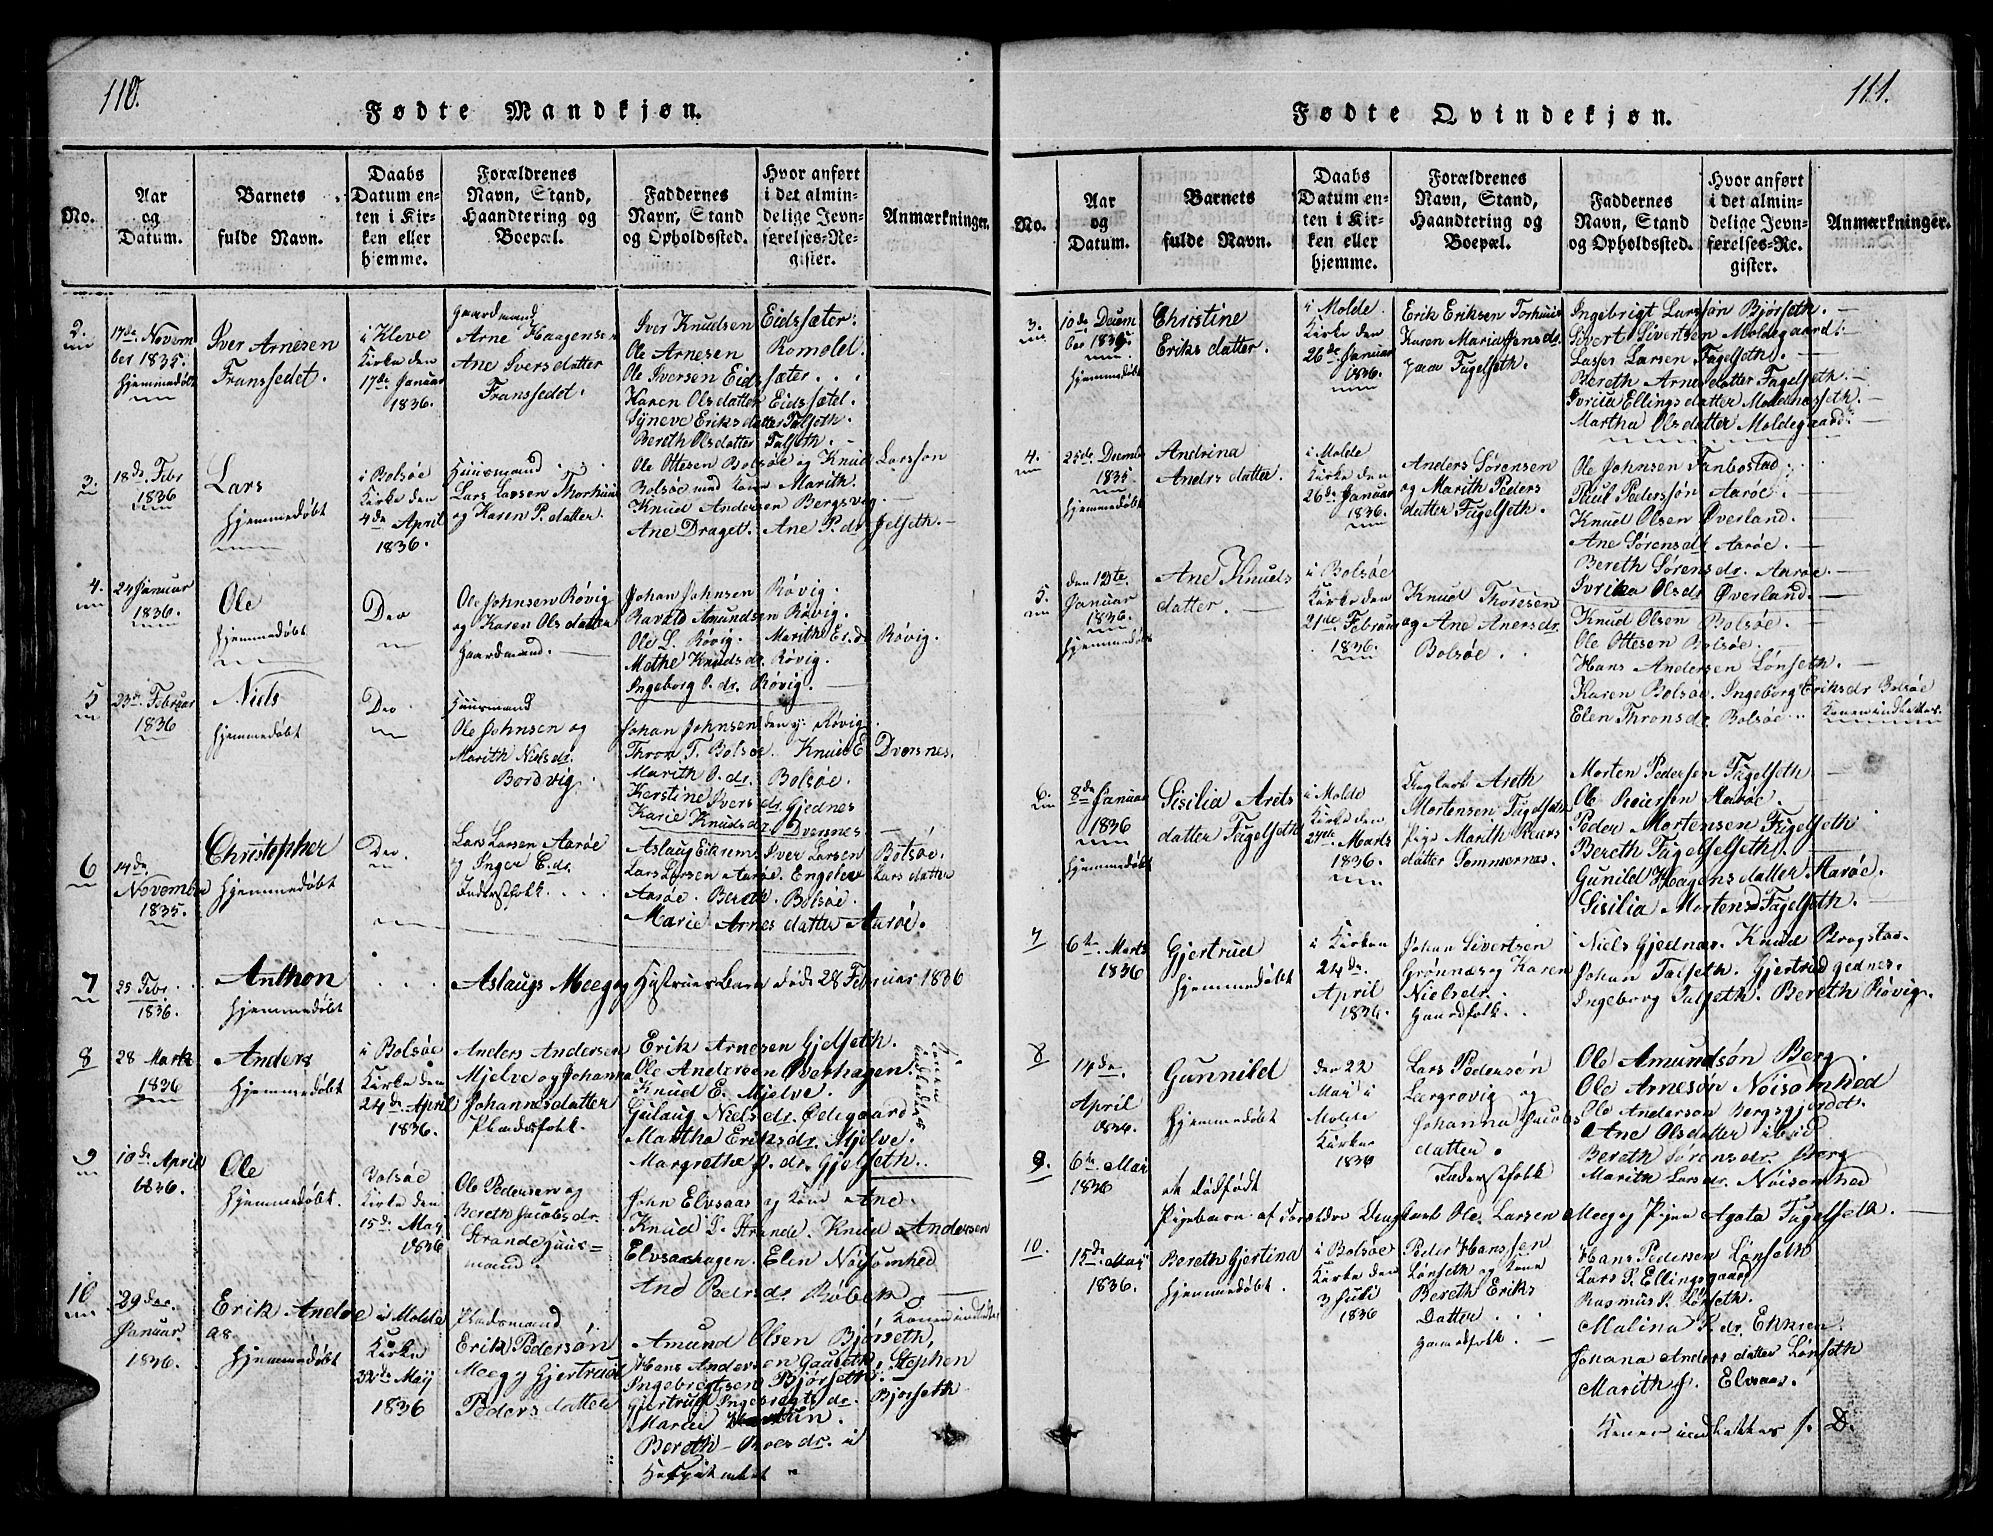 110.
Fødte Mandkjøn.
No.
Aar
og
Datum.
Barnets
fulde Navn.
Daabs
Datum en-
ten i Kir-
ken eller
hjemme.
Forældrenes
Navn, Stand,
Haandtering og
Boepæl.
Faddernes
Navn, Stand
og Opholdssted.
Hvor anført
i det almin-
delige Jevn-
førelses-Re-
gister.
Anmærkninger.
2.
17de Novem
ber 1835.
Hjemmedøbt
Iver Arnesen
Franssedet.
i Kleve
Kirke den
17de Januar
1836.
Gaardmand
Arne Haagensen
Ane Iversdatter
Franssedet.
Iver Knudsen Eidssæter.
Ole Arnesen Romolel.
Ole Iversen Eidssæter.
Karen Olsdatter Eidssætel.
Syneve Eriksdatter Talseth.
Bereth Olsdatter Talseth.
3.
18de Febr
1836
Lars
Hjemmedøbt
i Bolsøe
Kirke den
4de April
1836.
Huusmand
Lars Larsen Thorhuus
og Karen P.datter.
Ole Ottesen Bolsøe og Knud Larssøn
Bolsøe med Kone Marith.
Knud Andersen Bergsvog
Ane Draget. Ane P.dr. Jelseth.
4.
24 Januar
1836.
Ole
Hjemmedøbt
Deo
Ole Johnsen Røvig
og Karen Olsdatter
Gaardmand.
Johan Johnsen Røvig.
Amundsen Røvig.
Ole L. Røvig. Marith Er.dr Røvig.
Mathe Knudsdr. Røvig.
Ingeborg O.dr. Røvig.
5
23de Februar
1836
Niels
Hjemmedøbt
Deo
Huusmand
Ole Johnsen og
Marith Nielsdr.
Bordvig
Johan Johnsen den y: Røvig.
Thron T. Bolsøe. Knud E Dversnes.
Marith O.dr. Bolsøe.
Kerstine Iversdr. Gjednes
Karie Knudsdr. Dversnes
6
14de
November
1835.
Christopher
Hjemmedøbt
Deo
Lars Larsen Aarøe
og Inger E.dr.
Inderstfolk
Aslaug Eikrem. Iver Larsen Bolsøe.
Lars Larsen Aarøe. Engelev Larsdatter
Aarøe. Bereth Bolsøe.
Marie Arnesdatter Aarøe.
7
25 Febr.
1836.
Anthon
Hjemmedøbt
Aslaugs Meeg og Hustrues Barn døde 28 Februar 1836
8
28 Marts
1836
Anders
Hjemmedøbt
i Bolsøe
Kirke den
24de April
1836.
Anders Andersen
Mjelve og Johanna
Johannesdatter
Pladsfolk.
Erik Arnesen Gjelseth.
Ole Andersen Øverhagen.
Knud E. Mjelve.
Gulaug Nielsdr. Ødegaard
Martha Eriksdr. Mjelve.
Margrethe J.dr. Gjelseth.
9
10de April
1836.
Ole
Hjemmedøbt
Bolsøe
Kirke den
15de May
1836
Ole Pedersen og
Bereth Jacobsdr.
Strande Huus-
mand
John Elvsaas og Kone Ane.
Knud P. Strande. Knud Andersen
Elvsaashagen. Elen Nøisomhed
And Pedersdr. Røbek
10
29de
Januar
1836.
Erik Andre
as
Hjemmedøbt
i Molde
Kirke
22de May
1836
Pladsmand
Erik Pedersøn
Meeg og Gjertrud
Pedersdatter
Amund Olsen Bjørseth,
Hans Andersen Gauseth, Stephen
Ingebregtsen Bjørseth.
Gjertrud Ingebregtsdr. Bjørseth
Maria
Bereth
Hospitalet
111.
Fødte Qvindekjøn.
No.
Aar
og
Datum.
Barnets
fulde Navn.
Daabs
Datum en-
ten i Kir-
ken eller
hjemme.
Forældrenes
Navn, Stand,
Haandtering og
Boepæl.
Faddernes
Navn, Stand
og Opholdssted.
Hvor anført
i det almin-
delige Jevn-
førelses-Re-
gister.
Anmærkninger.
3.
10de Decem
ber 1835.
Hjemmedøbt
Christine
Eriksdatter.
i Molde
Kirke den
26de Januar
1836.
Erik Eriksen Torhuus
Karen Maria Jensdr.
paa Fugelseth.
Ingebrigt Larssøn Bjørseth.
Sivert Sivertsen Moldegaard.
Lasse Larsen Fagelseth.
Bereth Arnesdatter Fagelseth.
Ellingsdatter Moldnosseth.
Martha Olsdatter Moldegaard.
4.
25de Decmb
1835
Hjemmedøbt
Andrina
Andersdatter.
i Molde
Kirke den
26de Januar
1836.
Anders Sørensen
og Marith Peders
datter Fugelseth.
Ole Johnsen Fanbostad
Paul Pederssøn Aarøe.
Knud Olsen Øverland.
Ane Sørensdt Aarøe.
Bereth Sørensdr. Aarøe.
Olsdr Øverland.
5.
den 12te
Januar
1836.
Hjemmedøbt
Ane Knuds
datter.
i Bolsøe
Kirke den
21de Februar
1836.
Knud Thoresen
og Ane Anersdr.
Bolsøe.
Knud Olsen Bolsøe.
Ole Ottesen Bolsøe.
Hans Andersen Lønseth.
Karen Bolsøe. Ingeborg Eriksdr Bolsøe
Elen Thronsdr Bolsøe. Konen indledet.
6
8de Januar
1836
Hjemmedøbt
Sisilia Arets
datter Fugelseth
i Molde
Kirke den
27de Marts
1836.
Ungkarl Areth
Mortensen Fugelseth
Pige Marith Peders
datter Sommernæs.
Morten Pedersen Fugelseth
Ole Pedersøn Aarøe.
Peder Mortensen Fugelseth
Bereth Fugelseth.
Gunild Hagensdatter Aarøe.
Sisilia Mortensd Fugelseth.
7
6te Marts
1836
Gjertrud
Hjemmedøbt
i Kirken
24de
April
1836.
Johan Sivertsen
Grønnæs og Karen
Nielsdr.
Gaardfolk.
Niels Gjednæs. Knud Bragstad.
Johan Talseth. Gjertrud Gjednes.
Ingeborg Talseth. Bereth Røvig.
8
14de
April
1836.
Gunnild
Hjemmedøbt
den 22
May i
Molde
Kirke
1836
Lars Pedersøn
Leergrovig og
Johanna Jacobs
datter.
Inderstfolk
Ole Amundsøn Berg.
Ole Arnesøn Nøisomhed
Ole Andersøn Bergsgjerdet.
Ane Olsdatter ibid
Bereth Sørensdr. Berg
Marith Larsdr. Nøisomhed
9.
6te May
1836
et dødfødt
Pigebarn af Forældre Ungkarl Ole Larsen Meeg og Pigen Agata Fugelseth.
10.
15de May
1836.
Bereth Gjertina
Hjemmedøbt.
i Bolsøe
Kirke den
3 Juli
1836
Peder Hanssen
Lønseth og Kone
Bereth Eriks
Datter
Gaardfolk.
Hans Pedersen Lønseth
Lars P. Ellingsgaard
Rasmus P. Lønseth.
Malina P.dr. Eknen.
Johana Andersdatter Lønseth
Marith J. Elvsaas.
Konen indledet s. D.